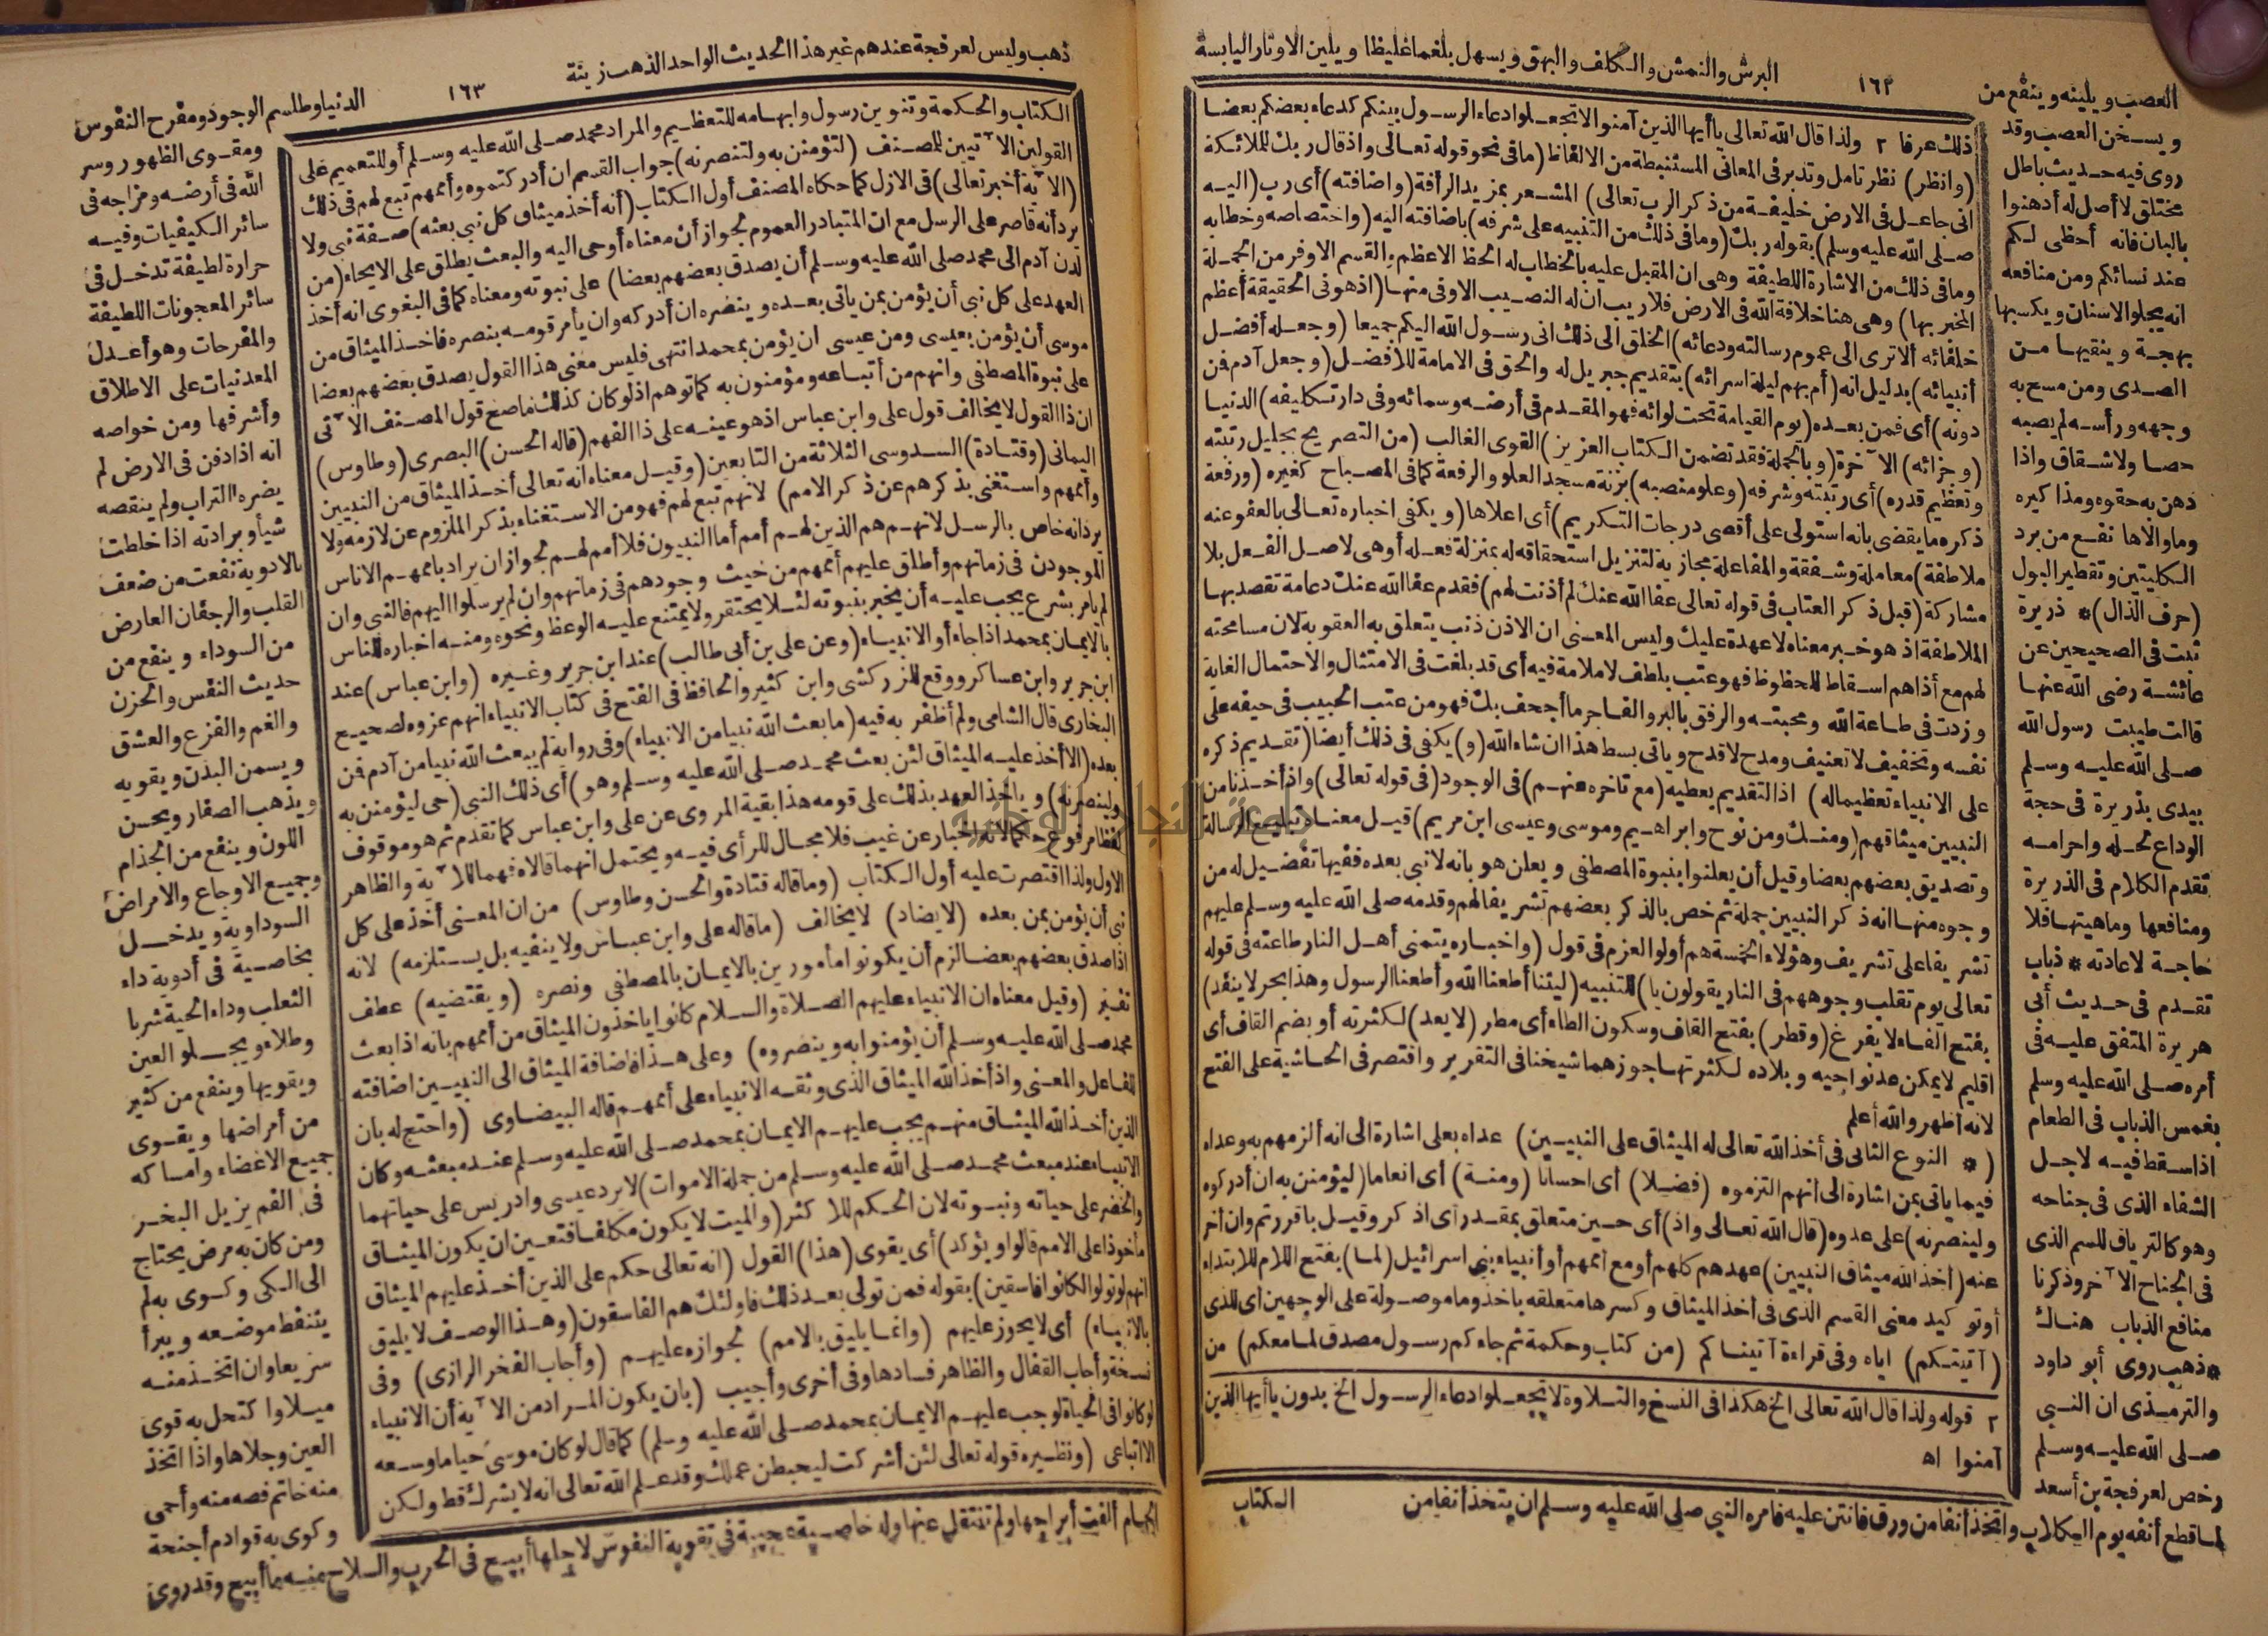 البرش والنمش والكلف والبهق ويسهل بلغما غليظا ويلين الاوتار اليابسة
١٦٢
العصب ويلينه وينفع من
ويسخن العصب وقد
روى فيه حديث باطل
مختلق لا أصل له أدهنوا
بالبان فانه أحظى لكم
عند نسائكم ومن منافعه
انه يجلو الاسنان ويكسبها
بهجة وينقيها من
الصدى ومن مسح به
وجهه ورأسه لم يصبه
حصا ولا شقاق واذا
دهن به حقوه ومذا كيره
وما والاها نفع من برد
الكليتين وتقطير البول
(حرف الذال)* ذريرة
ثبت فى الصحيحين عن
عائشة رضى الله عنها
قالت طيبت رسول الله
صلى الله عليه وسلم
بيدى بذريرة فى حجة
الوداع لحله واحرامه
تقدم الكلام فى الذريرة
ومنافعها وماهيتها فلا
حاجة لاعادته * ذباب
تقدم فى حديث أبى
هريرة المتفق عليه فى
أمره صلى الله عليه وسلم
بغمس الذباب فى الطعام
اذا سقط فيه لاجل
الشفاء الذى فى جناحه
وهو كالترياق للسم الذى
فى الجناح الآخر وذكرنا
منافع الذباب هناك
* ذهب روى أبو داود
والترمذى ان النبى
صلى الله عليه وسلم
رخص لعرفجة بن أسعد
لما قطع أنفه يوم الكلاب واتخذ أنفا من ورق فانتن عليه فامره النبى صلى الله عليه وسلم ان يتخذ أنفا من
ذلك عرفا ٢ ولذا قال الله تعالى يا أيها الذين آمنوا لا تجعلوا دعاء الرسول بينكم كدعاء بعضكم بعضا
(وانظر) نظر تامل وتدبر فى المعانى المستنبطة من الالفاظ (ما فى نحو قوله تعالى واذ قال ربك للملائكة
انى جاعل فى الارض خليفة من ذكر الرب تعالى) المشعر بمزيد الرأفة (واضافته) أى رب (اليه
صلى الله عليه وسلم) بقوله ربك (وما فى ذلك من التنبيه على شرفه) باضافته اليه (واختصاصه وخطابه
وما فى ذلك من الاشارة اللطيفة وهى ان المقبل عليه بالخطاب له الحظ الاعظم والقسم الاوفر من الجملة
المخبر بها) وهى هنا خلافة الله فى الارض فلا ريب ان له النصيب الاوفى منها (اذ هو فى الحقيقة أعظم
خلفائه ألا ترى الى عموم رسالته ودعائه) الخلق الى ذلك انى رسول الله اليكم جميعا (وجعله أفضل
أنبيائه) بدليل انه (أم بهم ليلة اسرائه) بتقديم جبريل له والحق فى الامامة للافضل (وجعل آدم فن
دونه) أى فمن بعده (يوم القيامة تحت لوائه فهو المقدم فى أرضه وسمائه وفى دار تكليفه) الدنيا
(وجزائه) الآخرة (وبالجملة فقد تضمن الكتاب العزيز) القوى الغالب (من التصريح بجليل رتبته
وتعظيم قدره) أى رتبته وشرفه (وعلو منصبه) بزنة مسجد العلو والرفعة كما فى المصباح كغيره (ورفعة
ذكره ما يقضى بانه استولى على أقصى درجات التكريم) أى اعلاها (ويكفى اخباره تعالى بالعفو عنه
ملاطفة) معاملة وشفقة والمفاعلة مجازية لتنزيل استحقاقه له بمنزلة فعله أو هى لاصل الفعل بلا
مشاركة (قبل ذكر العتاب فى قوله تعالى عفا الله عنك لم أذنت لهم) فقدم عفا الله عنك دعامة تقصد بها
الملاطفة اذ هو خبر معناه لا عهدة عليك وليس المعنى ان الاذن ذنب يتعلق به العقوبة لان مسامحته
لهم مع أذاهم اسقاط للحظوظ فهو عتب بلطف لا ملامة فيه أى قد بلغت فى الامتثال والاحتمال الغاية
وزدت فى طاعة الله ومحبته والرفق بالبر والفاجر ما أجحف بك فهو من عتب الحبيب فى حيفه على
نفسه وتخفيف لا تعنيف ومدح لا قدح وياتى بسط هذا ان شاء الله (و) يكفى فى ذلك أيضا (تقديم ذكره
على الانبياء تعظيما له) اذ التقديم يعطيه (مع تاخره عنهم) فى الوجود (فى قوله تعالى) واذ أخذنا من
النبيين ميثاقهم (ومنك ومن نوح وابراهيم وموسى وعيسى ابن مريم) قيل معناه تبليغ الرسالة
وتصديق بعضهم بعضا وقيل أن يعلنوا بنبوة المصطفى ويعلن هو بانه لا نبى بعده ففيها تفضيل له من
وجوه منها انه ذكر النبيين جملة ثم خص بالذكر بعضهم تشريفا لهم وقدمه صلى الله عليه وسلم عليهم
تشريفا على تشريف وهؤلاء الخمسة هم أولوا العزم فى قول (واخباره بتمنى أهل النار طاعته فى قوله
تعالى يوم تقلب وجوههم فى النار يقولون يا) للتنبيه (ليتنا أطعنا الله وأطعنا الرسول وهذا بحر لا ينفد)
بفتح الفاء لا يفرغ (وقطر) بفتح القاف وسكون الطاء أى مطر (لا يعد) لكثرته أو بضم القاف أى
اقليم لا يمكن عد نواحيه وبلاده لكثرتها جوزهما شيخنا فى التقرير واقتصر فى الحاشية على الفتح
لانه أظهر والله أعلم
(* النوع الثانى فى أخذ الله تعالى له الميثاق على النبيين) عداه بعلى اشارة الى انه ألزمهم به وعداه
فيما ياتى بمن اشارة الى انهم التزموه (فضلا) أى احسانا (ومنة) أى انعاما (ليؤمنن به ان أدركوه
ولينصرنه) على عدوه (قال الله تعالى واذ) أى حين متعلق بمقدر أى اذكر وقيل باقررتم وان أخر
عنه (أخذ الله ميثاق النبيين) عهدهم كلهم أو مع أممهم أو أنبياء بنى اسرائيل (لما) بفتح اللام للابتداء
أو توكيد معنى القسم الذى فى أخذ الميثاق وكسرها متعلقه باخذ وما موصولة على الوجهين أى للذى
(آتيتكم) اياه وفى قراءة آتيناكم (من كتاب وحكمة ثم جاءكم رسول مصدق لما معكم) من
٢ قوله ولذا قال الله تعالى الخ هكذا فى النسخ والتلاوة لا تجعلوا دعاء الرسول الخ بدون يا أيها الذين
آمنوا اه
الكتاب
ذهب وليس لعرفجة عندهم غير هذا الحديث الواحد الذهب زينة
١٦٣
الدنيا وطلسم الوجود ومفرح النفوس
ومقوى الظهور وسر
الله فى أرضه ومزاجه فى
سائر الكيفيات وفيه
حرارة لطيفة تدخل فى
سائر المعجونات اللطيفة
والمفرحات وهو أعدل
المعدنيات على الاطلاق
وأشرفها ومن خواصه
انه اذا دفن فى الارض لم
يضره التراب ولم ينقصه
شيأ وبرادته اذا خلطت
بالادوية نفعت من ضعف
القلب والرجفان العارض
من السوداء وينفع من
حديث النفس والحزن
والغم والفزع والعشق
ويسمن البدن ويقويه
ويذهب الصفار ويحسن
اللون وينفع من الجذام
وجميع الاوجاع والامراض
السوداوية ويدخل
بخاصية فى أدوية داء
الثعلب وداء الحية شربا
وطلاء ويجلو العين
ويقويها وينفع من كثير
من أمراضها ويقوى
جميع الاعضاء وامساكه
فى الفم يزيل البخر
ومن كان به مرض يحتاج
الى الكى وكوى به لم
يتنفط موضعه ويبرأ
سريعا وان اتخذ منه
ميلا واكتحل به قوى
العين وجلاها واذا اتخذ
منه خاتم فصه منه وأحمى
وكوى به قوادم أجنحة
الحمام ألفت أبراجها ولم تنتقل عنها وله خاصية عجيبة فى تقوية النفوس لاجلها أبيح فى الحرب والسلاح منه ما أبيح وقد روى
الكتاب والحكمة وتنوين رسول وابهامه للتعظيم والمراد محمد صلى الله عليه وسلم أو للتعميم على
القولين الآتيين للمصنف (لتؤمنن به ولتنصرنه) جواب القسم ان أدركتموه وأممهم تبع لهم فى ذلك
(الآية أخبر تعالى) فى الازل كما حكاه المصنف أول الكتاب (أنه أخذ ميثاق كل نبى بعثه) صفة نبى ولا
يرد أنه قاصر على الرسل مع ان المتبادر العموم لجواز أن معناه أوحى اليه والبعث يطلق على الايحاء (من
لدن آدم الى محمد صلى الله عليه وسلم أن يصدق بعضهم بعضا) على نبوته ومعناه كما فى البغوى انه أخذ
العهد على كل نبى أن يؤمن بمن ياتى بعده وينصره ان أدركه وان يأمر قومه بنصره فاخذ الميثاق من
موسى أن يؤمن بعيسى ومن عيسى ان يؤمن بمحمد انتهى فليس معنى هذا القول يصدق بعضهم بعضا
على نبوة المصطفى وانهم من أتباعه ومؤمنون به كما توهم اذ لو كان كذلك ما صح قول المصنف الآتى
ان ذا القول لا يخالف قول على وابن عباس اذ هو عينه على ذا الفهم (قاله الحسن) البصرى (وطاوس)
اليمانى (وقتادة) السدوسى الثلاثة من التابعين (وقيل معناه انه تعالى أخذ الميثاق من النبيين
وأممهم واستغنى بذكرهم عن ذكر الامم) لانهم تبع لهم فهو من الاستغناء بذكر الملزوم عن لازمه ولا
يرد انه خاص بالرسل لانهم هم الذين لهم أمم أما النبيون فلا أمم لهم لجواز ان يراد باممهم الاناس
الموجودن فى زمانهم وأطلق عليهم أممهم من حيث وجودهم فى زمانهم وان لم يرسلوا اليهم فالنبى وان
لم يامر بشرع يجب عليه أن يخبر بنبوته لئلا يحتقر ولا يمتنع عليه الوعظ ونحوه ومنه اخباره للناس
بالايمان بمحمد اذا جاء أو الانبياء (وعن على بن أبى طالب) عند ابن جرير وغيره (وابن عباس) عند
ابن جرير وابن عساكر ووقع للزركشى وابن كثير والحافظ فى الفتح فى كتاب الانبياء انهم عزوه لصحيح
البخارى قال الشامى ولم أظفر به فيه (ما بعث الله نبيا من الانبياء) وفى رواية لم يبعث الله نبيا من آدم فن
بعده (الا أخذ عليه الميثاق لئن بعث محمد صلى الله عليه وسلم وهو) أى ذلك النبى (حى ليؤمنن به
ولينصرنه) وياخذ العهد بذلك على قومه هذا بقية المروى عن على وابن عباس كما تقدم ثم هو موقوف
لفظا مرفوع حكما لانه اخبار عن غيب فلا مجال للرأى فيه ويحتمل انهما قالاه فهما للآية والظاهر
الاول ولذا اقتصرت عليه أول الكتاب (وما قاله قتادة والحسن وطاوس) من ان المعنى أخذ على كل
نبى أن يؤمن بمن بعده (لا يضاد) لا يخالف (ما قاله على وابن عباس ولا ينفيه بل يستلزمه) لانه
اذا صدق بعضهم بعضا لزم أن يكونوا مأمورين بالايمان بالمصطفى ونصره (ويقتضيه) عطف
تفسير (وقيل معناه ان الانبياء عليهم الصلاة والسلام كانوا ياخذون الميثاق من أممهم بانه اذا بعث
محمد صلى الله عليه وسلم أن يؤمنوا به وينصروه) وعلى هذا فاضافة الميثاق الى النبيين اضافته
للفاعل والمعنى واذ أخذ الله الميثاق الذى وثقه الانبياء على أممهم قاله البيضاوى (واحتج له بان
الذين أخذ الله الميثاق منهم يجب عليهم الايمان بمحمد صلى الله عليه وسلم عند مبعثه وكان
الانبياء عند مبعث محمد صلى الله عليه وسلم من جملة الاموات) لا يرد عيسى وادريس على حياتهما
والخضر على حياته ونبوته لان الحكم للاكثر (والميت لا يكون مكلفا فتعين ان يكون الميثاق
مأخوذا على الامم قالوا ويؤكد) أى يقوى (هذا) القول (انه تعالى حكم على الذين أخذ عليهم الميثاق
انهم لو تولوا لكانوا فاسقين) بقوله فمن تولى بعد ذلك فاولئك هم الفاسقون (وهذا الوصف لا يليق
بالانبياء) أى لا يجوز عليهم (وانما يليق بالامم) لجوازه عليهم (وأجاب الفخر الرازى) وفى
نسخة وأجاب القفال والظاهر فسادها وفى أخرى وأجيب (بان يكون المراد من الآية أن الانبياء
لو كانوا فى الحياة لوجب عليهم الايمان بمحمد صلى الله عليه وسلم) كما قال لو كان موسى حيا ما وسعه
الا اتباعى (ونظيره قوله تعالى لئن أشركت ليحبطن عملك وقد علم الله تعالى انه لا يشرك قط ولكن